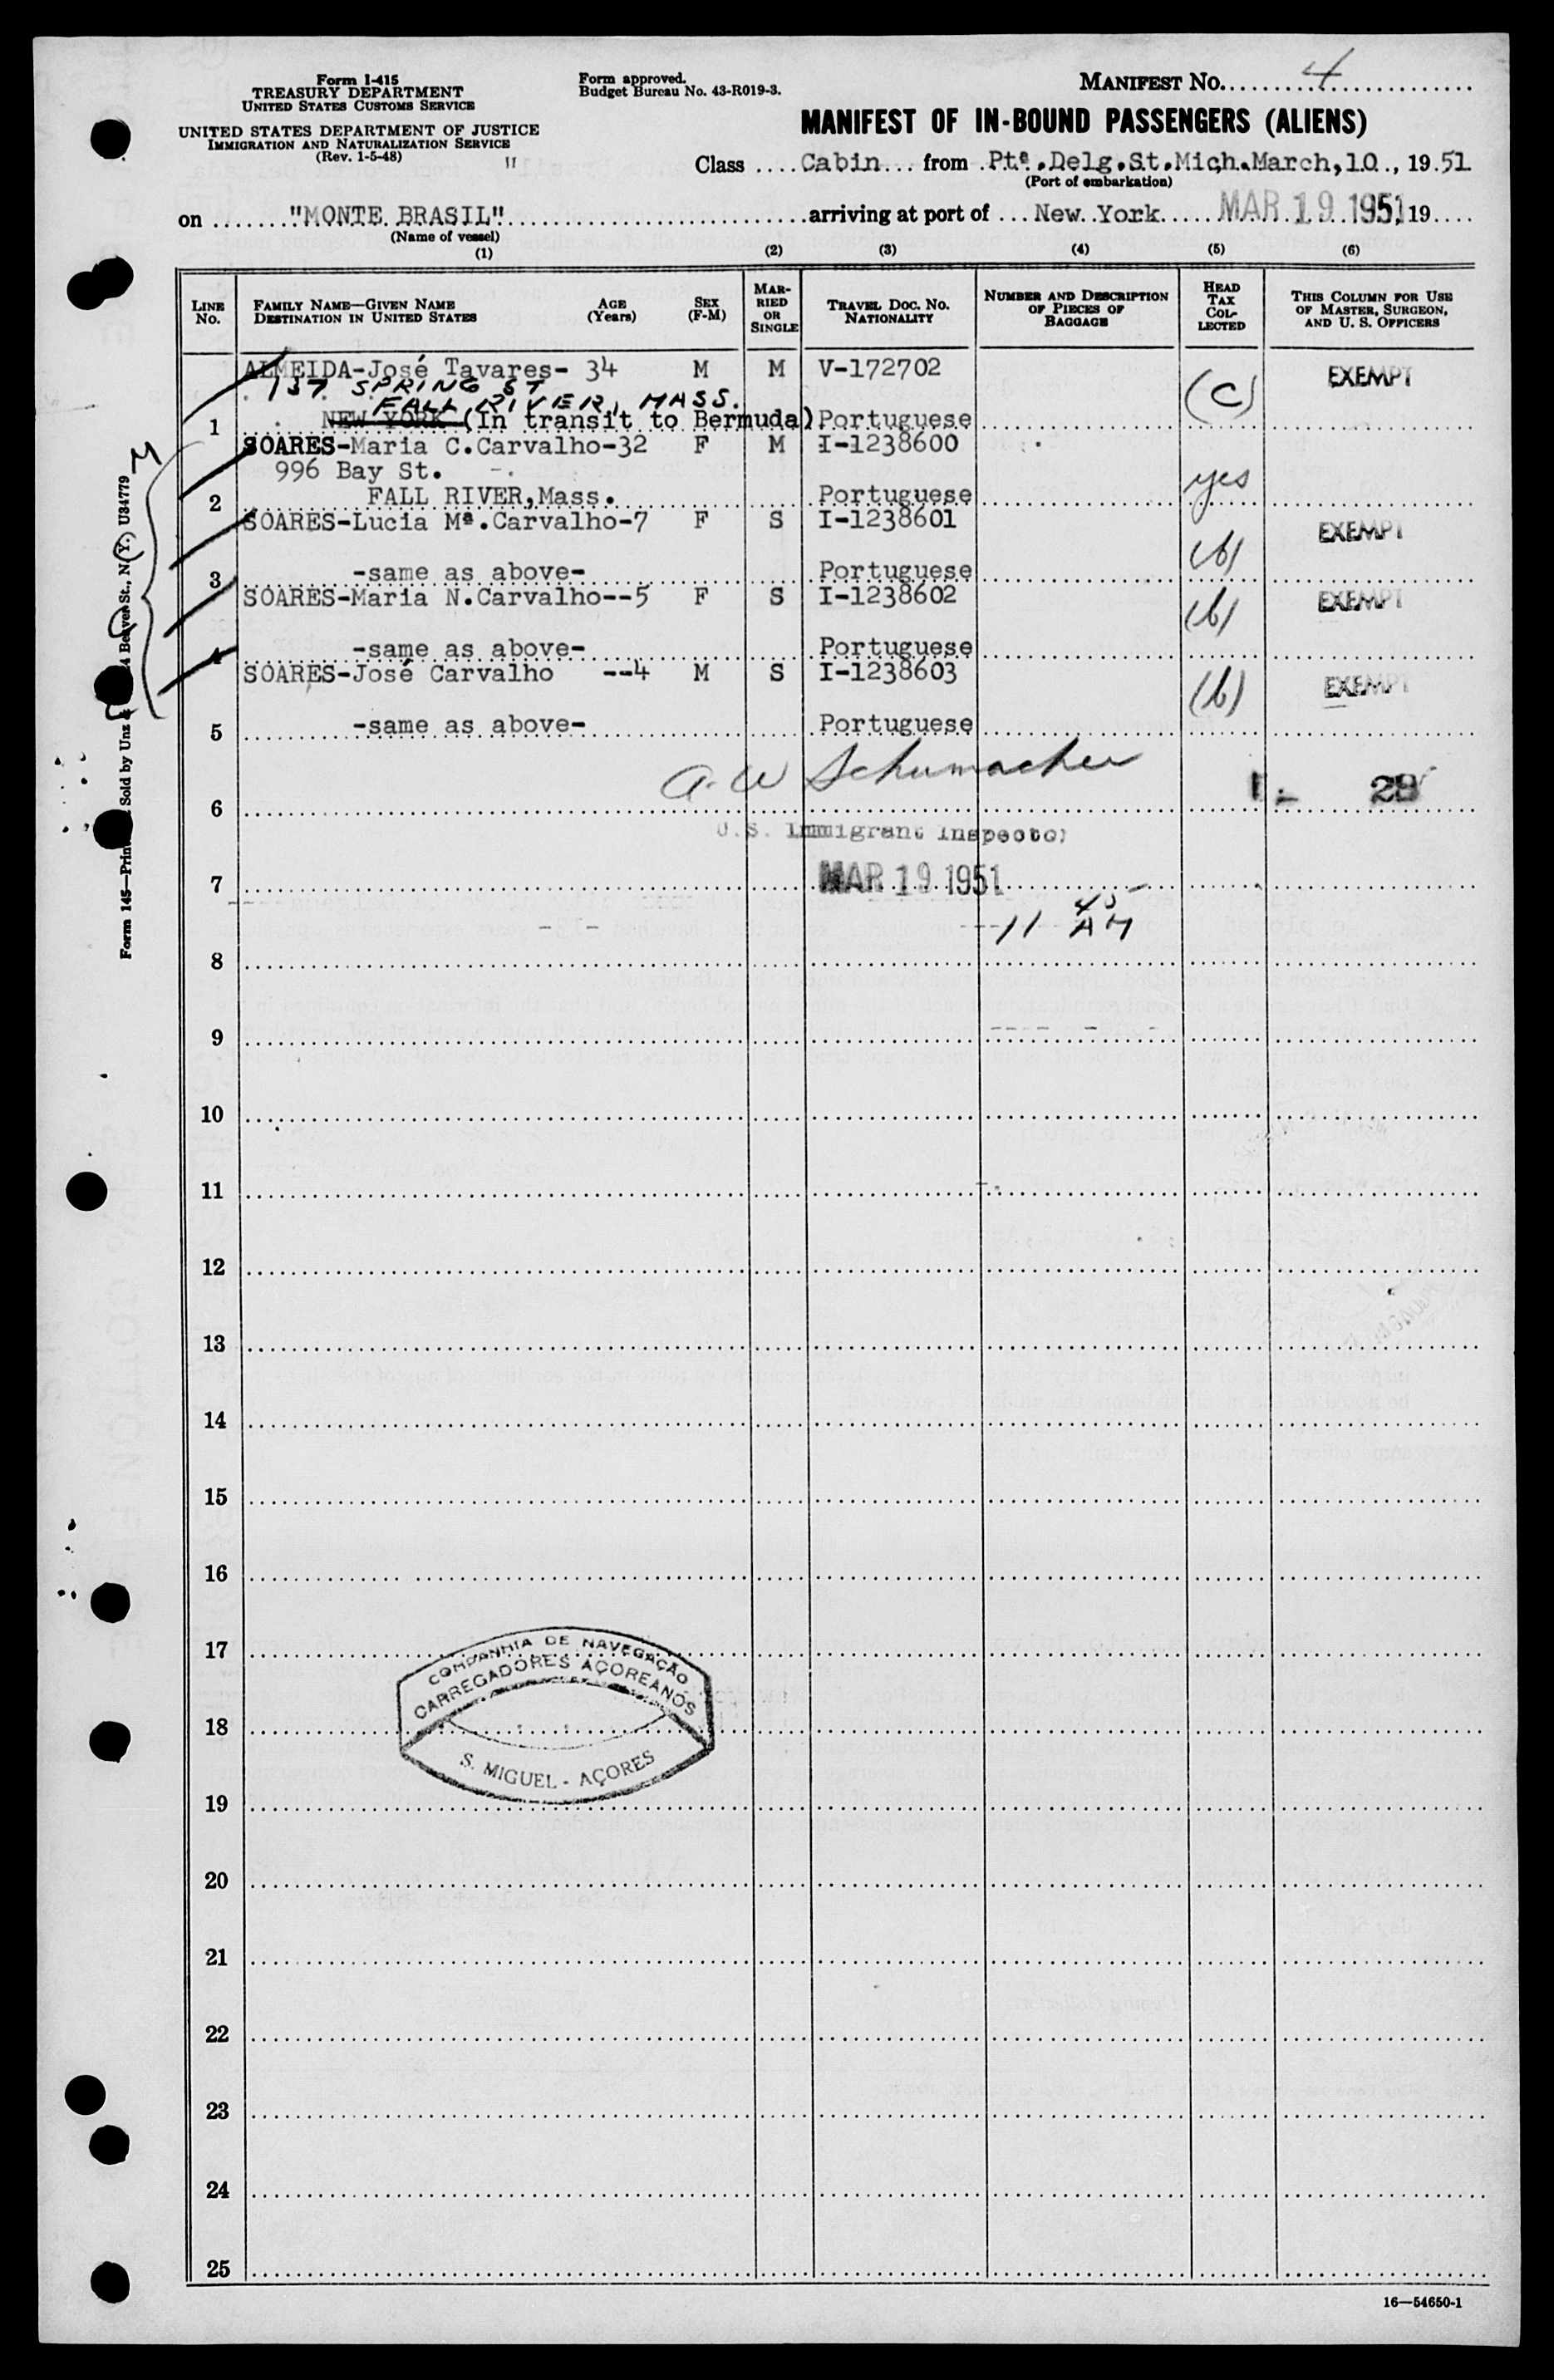 Form I-415
TREASURY DEPARTMENT
UNITED STATES CUSTOMS SERVICE
UNITED STATES DEPARTMENT OF JUSTICE
IMMIGRATION AND NATURALIZATION SERVICE
(Rev. 1-5-48)
"
Form approved.
Budget Bureau No. 43-R019-3.
MANIFEST No. 4
MANIFEST OF IN-BOUND PASSENGERS (ALIENS)
Class Cabin from Ptª.Delg.St.Mich.March,10., 19.51
(Port of embarkation)
on "MONTE BRASIL" arriving at port of New York MAR 19 1951, 19
(Name of vessel)
(1) (2) (3) (4) (5) (6)
LINE No. FAMILY NAME—GIVEN NAME DESTINATION IN UNITED STATES AGE (Years) SEX (F-M) MARRIED OR SINGLE TRAVEL DOC. NO. NATIONALITY NUMBER AND DESCRIPTION OF PIECES OF BAGGAGE HEAD TAX COLLECTED THIS COLUMN FOR USE OF MASTER, SURGEON, AND U. S. OFFICERS
ALMEIDA-José Tavares- 34 M M V-172702 EXEMPT
137 SPRING ST
FALL RIVER, MASS. (c)
1 NEW YORK (In transit to Bermuda) Portuguese
SOARES-Maria C.Carvalho-32 F M I-1238600
996 Bay St. yes
2 FALL RIVER,Mass. Portuguese
SOARES-Lucia Mª.Carvalho-7 F S I-1238601 EXEMPT
(b)
3 -same as above- Portuguese
SOARES-Maria N.Carvalho--5 F S I-1238602 EXEMPT
(b)
4 -same as above- Portuguese
SOARES-José Carvalho --4 M S I-1238603 EXEMPT
(b)
5 -same as above- Portuguese
A. W Schumacher
6 1 - 28
U.S. Immigrant Inspector
7 MAR 19 1951
11 45 AM
8
9
10
11
12
13
14
15
16
17
COMPANHIA DE NAVEGAÇÃO
CARREGADORES AÇOREANOS
18
S. MIGUEL - AÇORES
19
20
21
22
23
24
25
16—54650-1
M
Form 145—Sold by Unz & St., N. Y. U34779